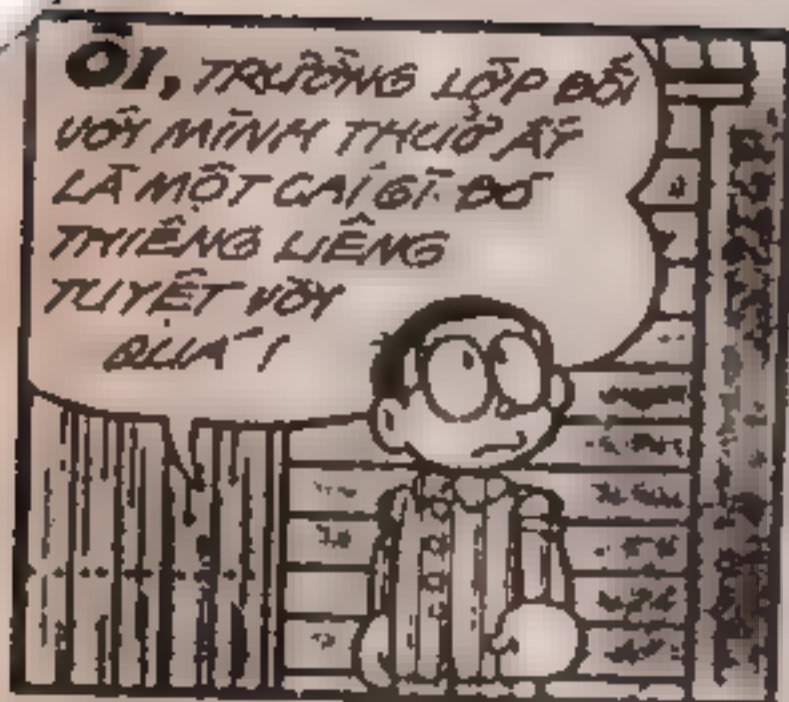 ÔI, TRƯỜNG LỚP ĐỐI
VỚI MÌNH THUỞ ẤY
LÀ MỘT CÁI GÌ ĐÓ
THIÊNG LIÊNG
TUYỆT VỜI
QUÁ!